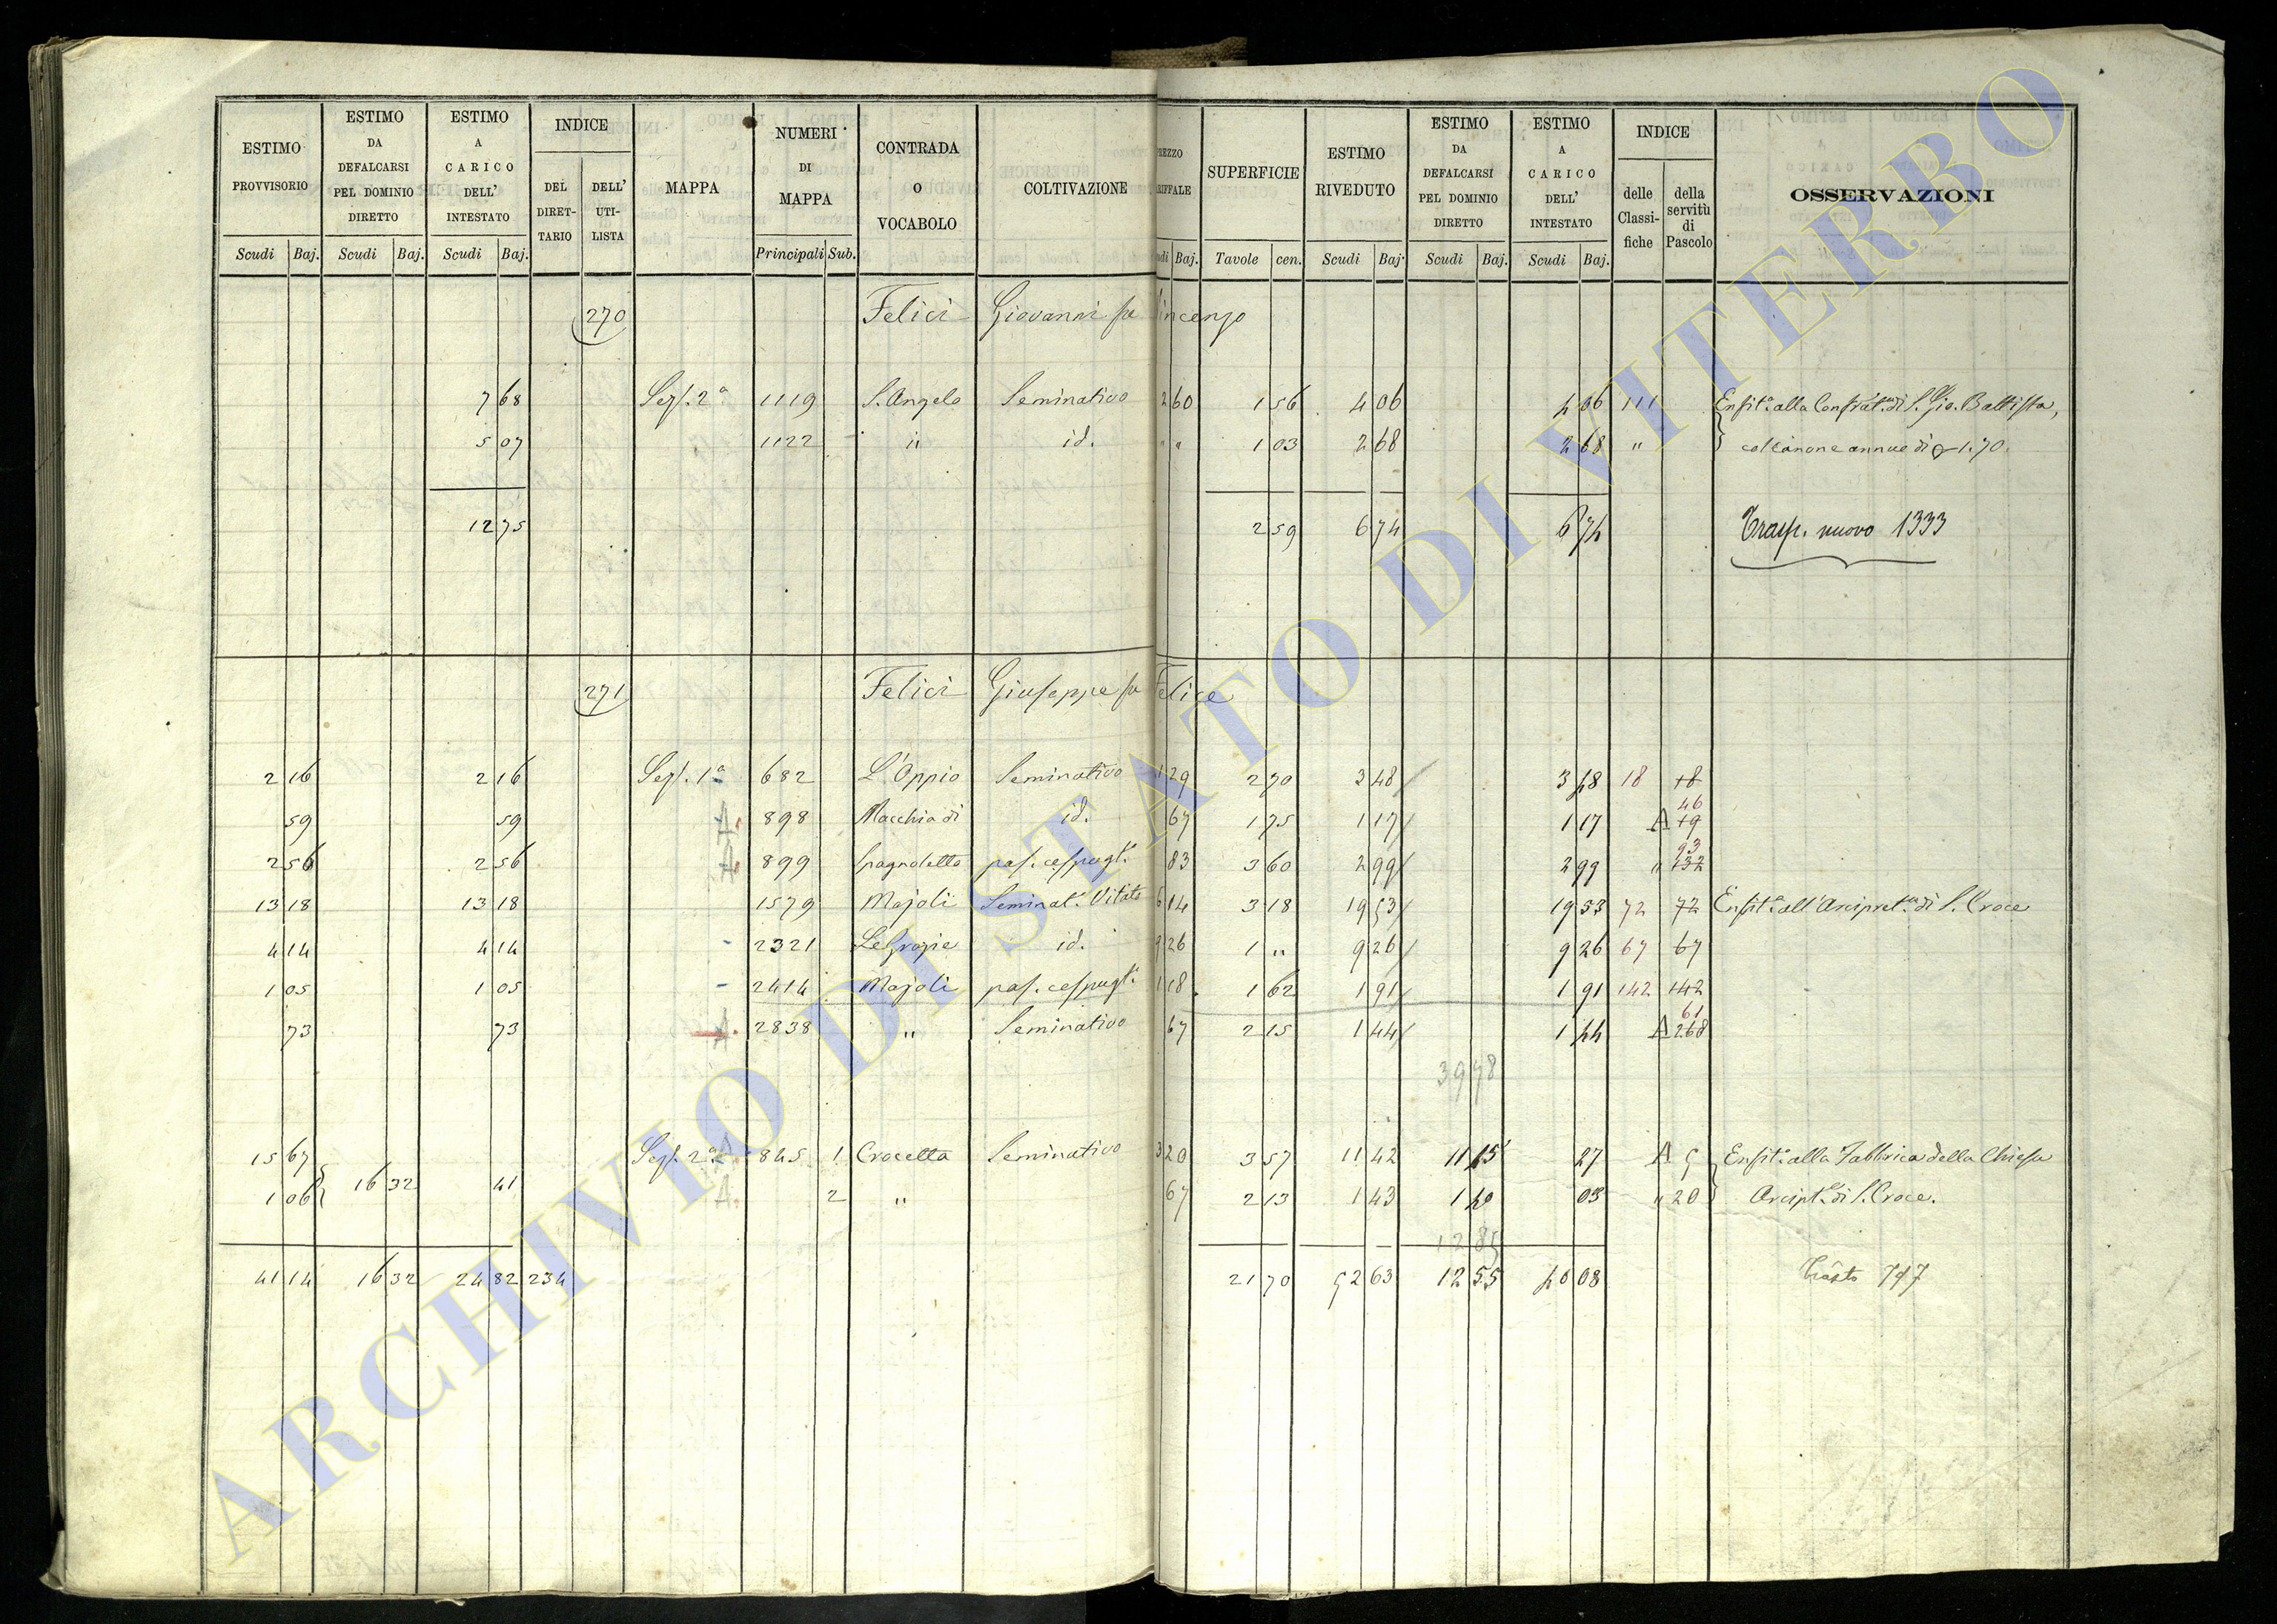 ESTIMO PROVVISORIO | ESTIMO DA DEFALCARSI PEL DOMINIO DIRETTO | ESTIMO A CARICO DELL' INTESTATO | INDICE DEL DIRETTARIO | DELL' UTILISTA | MAPPA | NUMERI DI MAPPA | CONTRADA O VOCABOLO | COLTIVAZIONE | REZZO ARIFFALE | SUPERFICIE | ESTIMO RIVEDUTO | ESTIMO DA DEFALCARSI PEL DOMINIO DIRETTO | ESTIMO A CARICO DELL' INTESTATO | INDICE delle Classifiche | della servitù di Pascolo | OSSERVAZIONI
Scudi Baj. Scudi Baj. Scudi Baj. Principali Sub. di Baj. Tavole cen. Scudi Baj. Scudi Baj. Scudi Baj.
270 Felici Giovanni fu Vincenzo
7 68 Sez. 2ª 1119 S. Angelo Seminativo 2 60 1 56 4 06 4 06 111 Enfit.ª alla Confrat.ª di S. Gio. Battista,
5 07 1122 " id. " " 1 03 2 68 2 68 " col canone annuo di 1.70.
12 75 2 59 6 74 6 74 Trasp. nuovo 1333
271 Felici Giuseppe fu Felice
2 16 2 16 Sez. 1ª 682 L'Oppio Seminativo 1 29 2 70 3 48 3 48 18 18
59 59 898 Macchia di id. 67 1 75 1 17 1 17 A 46 19
2 56 2 56 899 Spagnoletta pas. cespugl.º 83 3 60 2 99 2 99 " 93 132
13 18 13 18 1579 Majoli Seminat.º Vitato 6 14 3 18 19 53 19 53 72 72 Enfit.ª all'Arcipret.ª di S. Croce
4 14 4 14 2321 Le Grazie id. 9 26 1 " 9 26 9 26 67 67
1 05 1 05 2414 Majoli pas. cespugl.º 1 18 1 62 1 91 1 91 142 142
73 73 A 2838 " Seminativo 67 2 15 1 44 1 44 A 61 268
39 78
15 67 16 32 41 Sez. 2ª A 845 1 Crocetta Seminativo 3 20 3 57 11 42 11 15 27 A 5 Enfit.ª alla Fabbrica della Chiesa
1 06 A 2 " 67 2 13 1 43 1 40 03 " 20 Arcipt.ᵉ di S. Croce.
12 85
41 14 16 32 24 82 234 21 70 52 63 12 55 40 08 747
ARCHIVIO DI STATO DI VITERBO